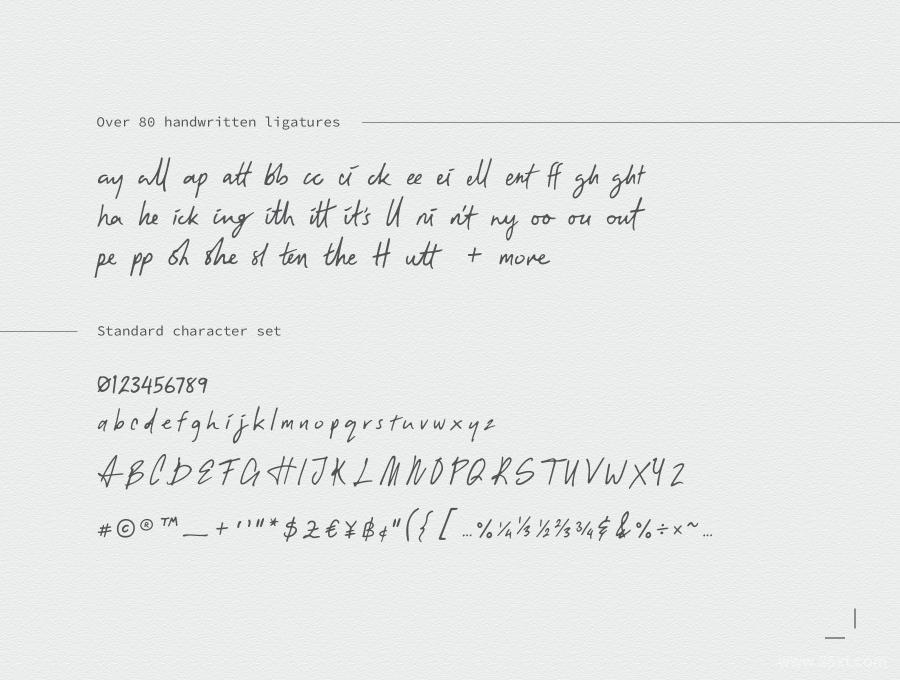 Over 80 handwritten ligatures
ay all ap att bb cc ci ck ee ei ell ent ff gh ght
ha he ick ing ith itt it's ll ni n't ny oo ou out
pe pp sh she sl ten the tt utt + more
Standard character set
0123456789
abcdefghijklmnopqrstuvwxyz
ABCDEFGHIJKLMNOPQRSTUVWXYZ
#©®™_+''"*$£€¥฿¢"({[…%¼⅓½⅔¾&&%÷×~…